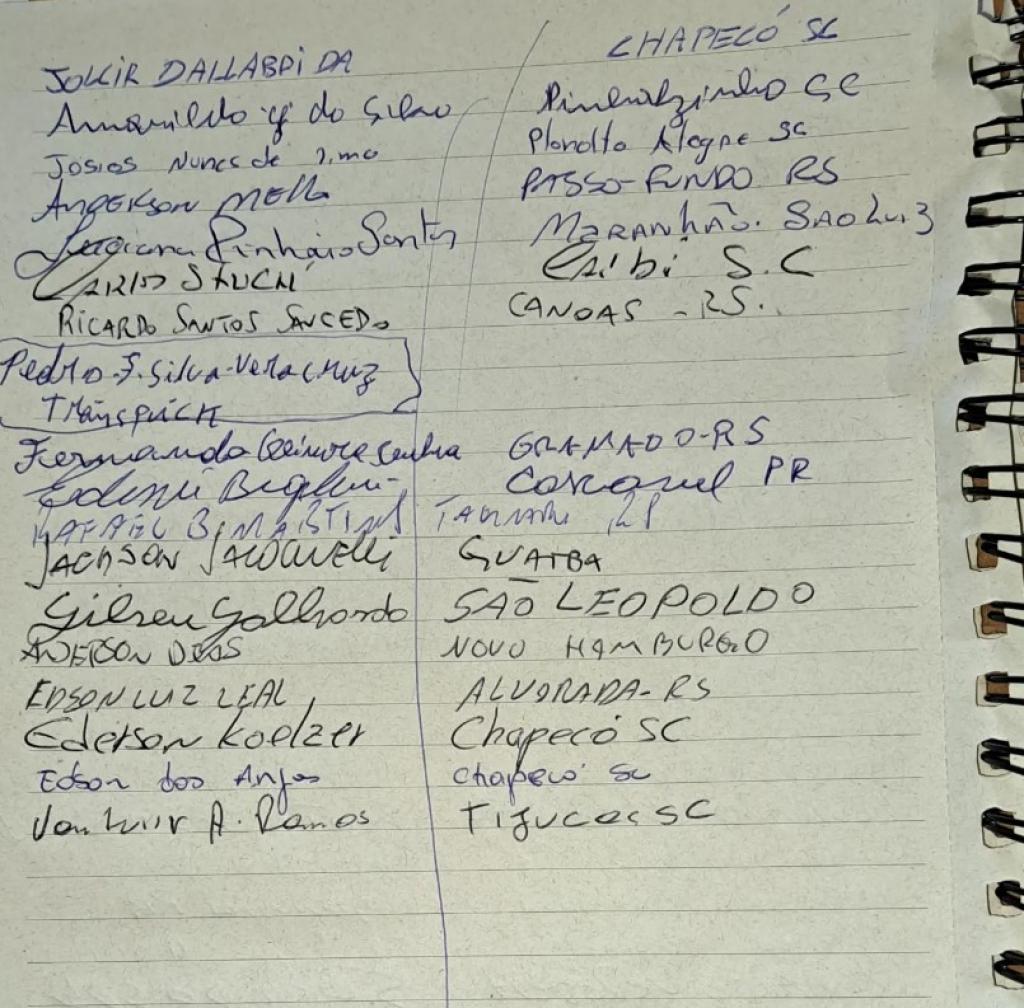 JOLCIR DALLABRIDA CHAPECÓ SC
Amarildo do Silva Pinhalzinho SC
Josias Nunes de Lima Planalto Alegre SC
ANDERSON MELLO PASSO-FUNDO RS
Pinheiro Santos MARANHÃO. SAO LUIZ
CARLOS STUCHI Caibi S.C
RICARDO SANTOS SAUCEDO CANOAS - RS.
Pedro. F. Silva-Vera Cruz
TRANSPICK
Fernando GRAMADO-RS
Cascavel PR
RAFAEL B. MARTINS TAQUARI RS
JACKSON GUAIBA
Gilneu Galhardo SÃO LEOPOLDO
ANDERSON DIAS NOVO HAMBURGO
EDSON LUIZ LEAL ALVORADA-RS
Ederson Koelzer Chapecó SC
Edson dos Anjos Chapecó SC
A. Ramos TIJUCAS SC